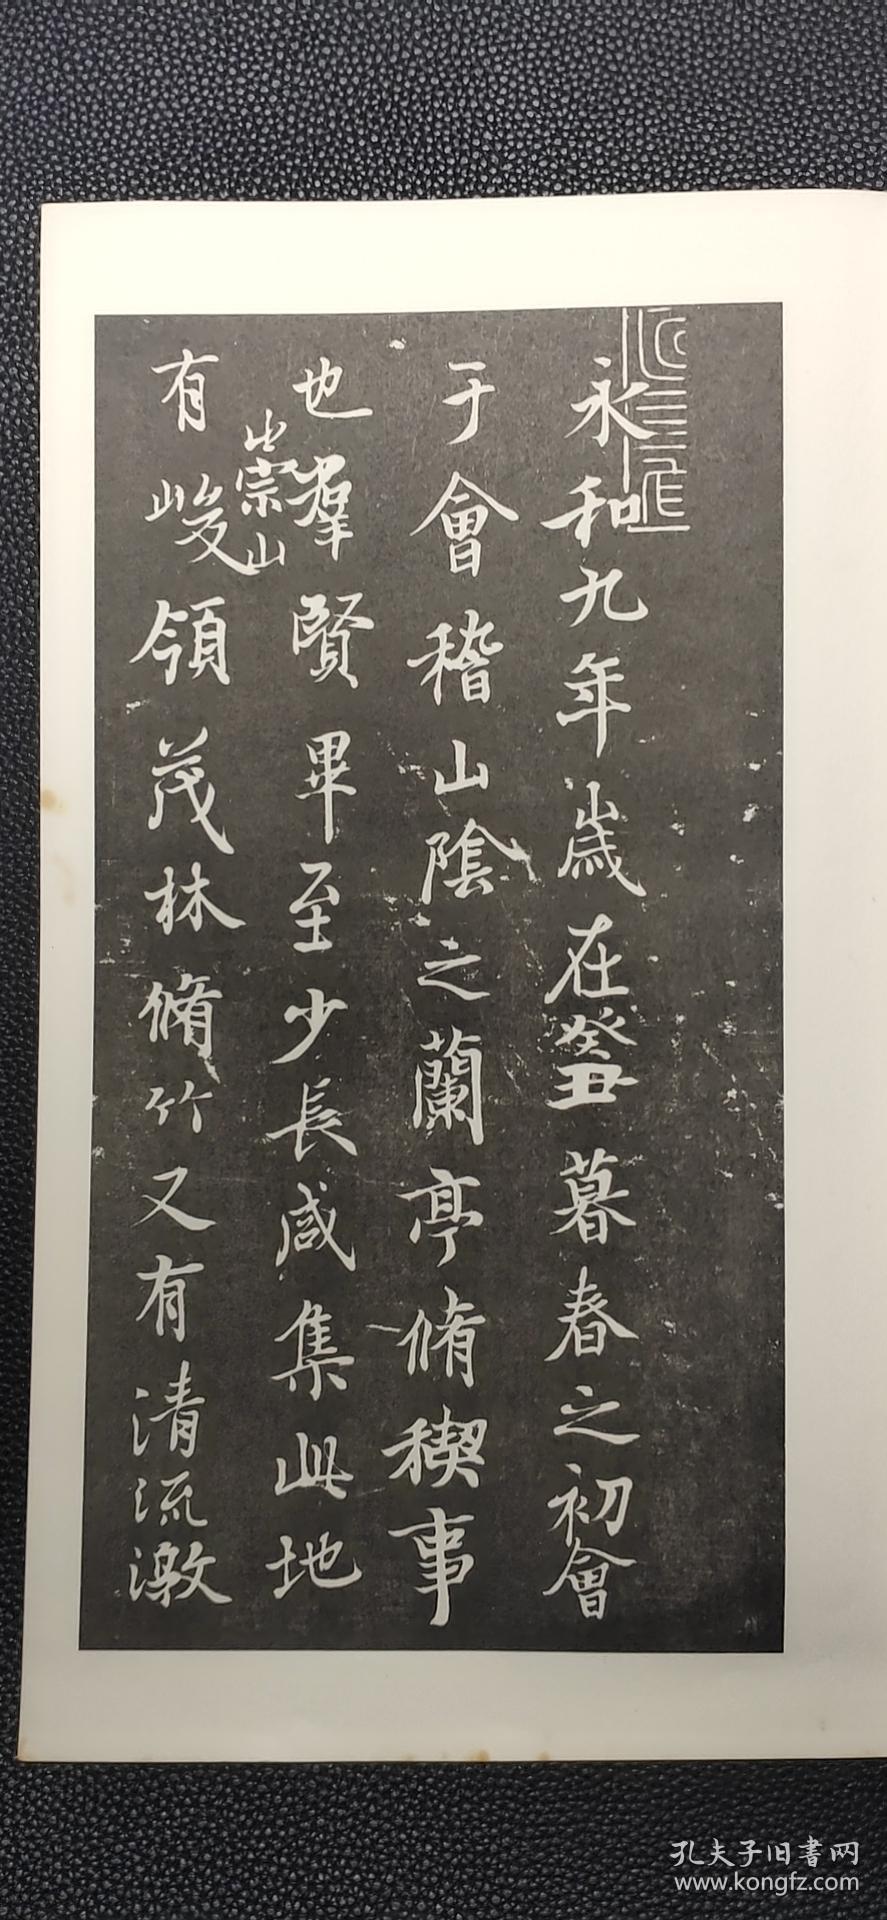 永和九年歲在癸丑暮春之初會
于會稽山陰之蘭亭脩稧事
也羣賢畢至少長咸集此地
有崇山峻領茂林脩竹又有清流激
孔夫子旧書网
www.kongfz.com